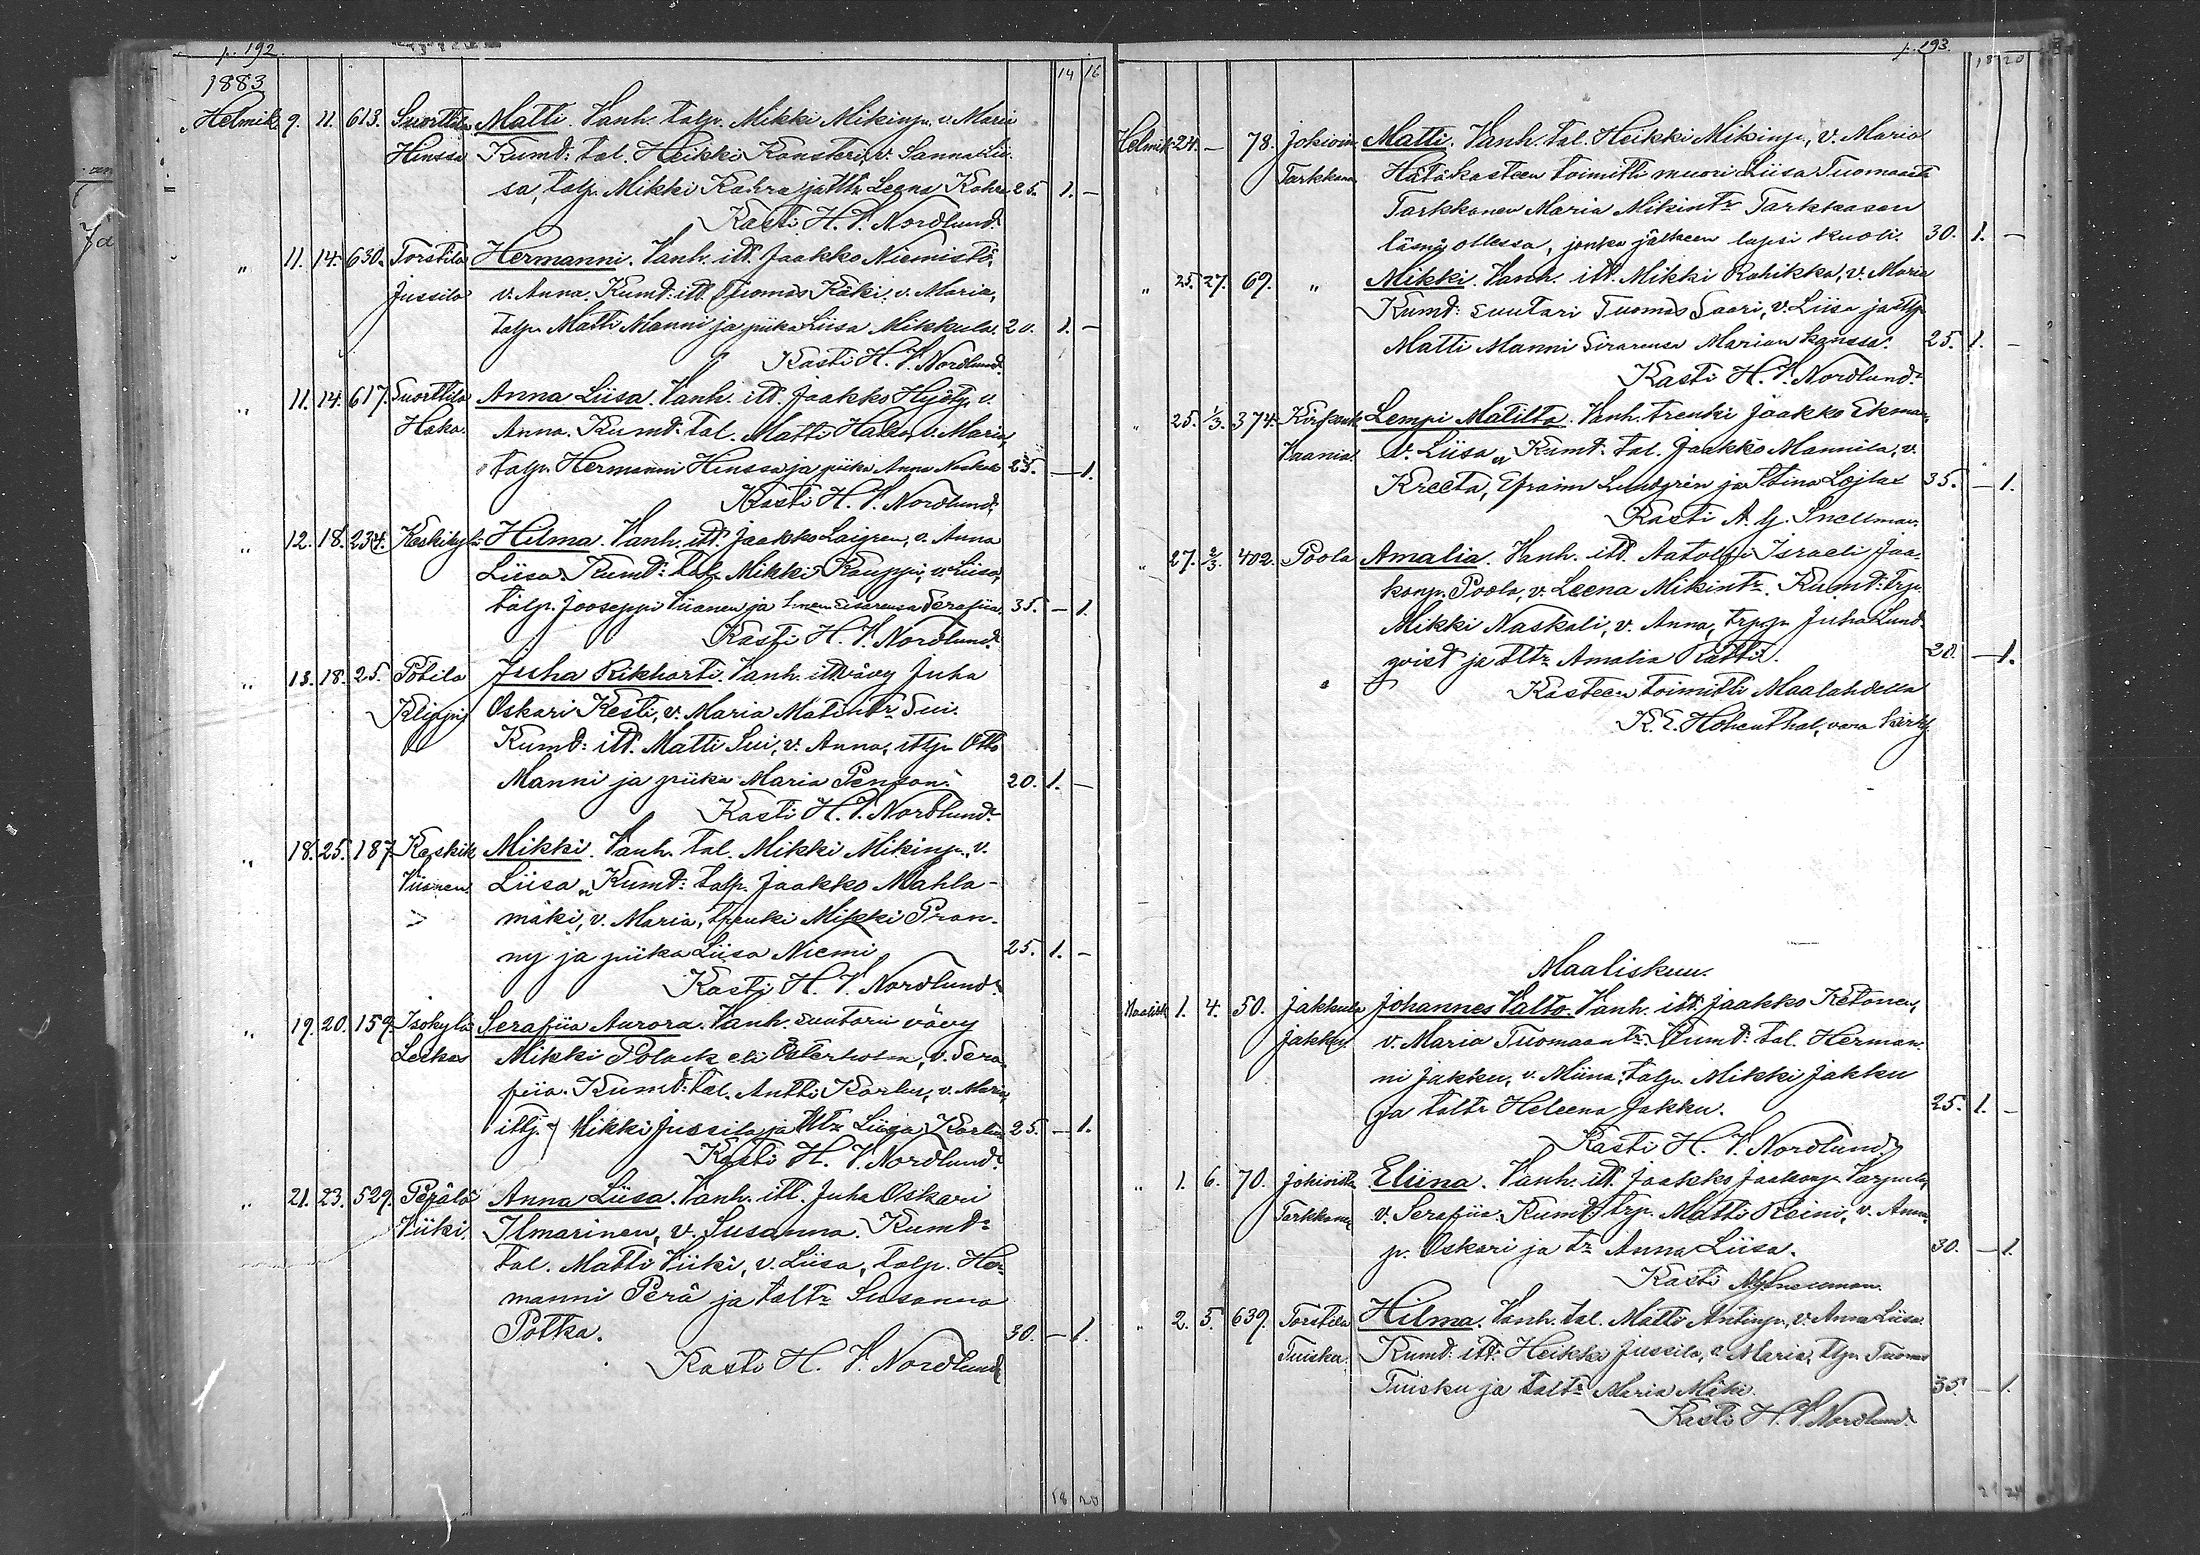 p. 192.
14 16
1883
Helmik. 9. 11. 613. Suorttila Matti. Vanh. talp. Mikki Mikinp. v. Maria
Hinssa Kumd: tal. Heikki Konsteri, v. Sanna Lii-
sa, talp. Mikki Kahra ja ttr Leena Kahra 25. 1. —
Kasti H. V. Nordlund.
„ 11. 14. 630. Torstila Hermanni. Vanh. itt. Jaakko Niemistö,
Jussila v. Anna. Kumd: itt. Tuomas Käki, v. Maria,
talp. Matti Manni ja piika Liisa Mikkula. 20. 1. —
Kasti H. V. Nordlund.
„ 11. 14. 617. Suorttila Anna Liisa. Vanh. itt. Jaakko v.
Haka. Anna. Kumd: tal. Matti Haka, v. Maria,
talp. Hermanni Hinssa ja piika Anna 25. — 1.
Kasti H. V. Nordlund.
„ 12. 18. 234. Keskikylä Hilma. Vanh. itt. Jaakko Laigren, v. Anna
Liisa. Kumd: talp. Mikki Kauppi, v. Liisa,
talp. Jooseppi Viianen ja sisarensa Serafiia. 35. — 1.
Kasti H. V. Nordlund.
„ 13. 18. 25. Pötilä Juha Rikharti. Vanh. itt vävy Juha
Klippi Oskari Kesti, v. Maria Matintr Sui.
Kumd: itt. Matti Sui, v. Anna, ittp. Otto
Manni ja piika Maria Penson. 20. 1. —
Kasti H. V. Nordlund.
„ 18. 25. 187. Keskik Mikki. Vanh. tal. Mikki Mikinp. v.
Viianen Liisa „ Kumd: talp. Jaakko Mahla-
mäki, v. Maria, trenki Mikki Pran-
ny ja piika Liisa Niemi 25. 1. —
Kasti H. V. Nordlund.
„ 19. 20. 159. Isokylä Serafiia Aurora. Vanh. suutarin vävy
Leskas Mikki Polack eli Österholm, v. Sera-
fiia. Kumd: tal. Antti Karlu, v. Maria,
ittp. Mikki Jussila ja ttr Liisa Karlu 25. — 1.
Kasti H. V. Nordlund.
„ 21. 23. 529. Perälä Anna Liisa. Vanh. itt. Juha Oskari
Viiki. Ilmarinen, v. Susanna. Kumd:
tal. Matti Viiki, v. Liisa, talp. Her-
manni Perä ja taltr Susanna
Potka. 30. — 1.
Kasti H. V. Nordlund
18 20
p. 193.
18 20
Helmik. 24. — 78. Jokivin Matti. Vanh. tal. Heikki Mikinp., v. Maria
Tarkkanen Hätäkasteen toimitti muori Liisa Tuomaantr
Tarkkanen Maria Mikintr Tarkkasen
läsnä ollessa, jonka jälkeen lapsi kuoli. 30. 1. —
„ 25. 27. 69. „ Mikki. Vanh. itt. Mikki Rahikka, v. Maria
Kumd: suutari Tuomas Saari, v. Liisa ja ittp.
Matti Manni sisarensa Marian kanssa. 25. 1. —
Kasti H. V. Nordlund.
„ 25. 1/3. 374. Kirkonk. Lempi Matilta. Vanh. trenki Jaakko Ekman,
Vaania. v. Liisa „ Kumd: tal. Jaakko Mannila, v.
Kreeta, Efraim Lundgrén ja Stina Löjlax 35. — 1.
Kasti A. G. Snellman.
„ 27. 2/3. 402. Poola Amalia. Vanh. itt. Aatolfi Israeli Jaa-
konp. Poola, v. Leena Mikintr. Kumd: trp.
Mikki Naskali, v. Anna, trp. Juha Lund-
qvist ja ttr Amalia Rätti. 20. — 1.
Kasteen toimitti Maalahdella
K. E. Hohenthal, vara kirkh.
Maaliskuu.
Maalisk 1. 4. 50. Jakkula Johannes Valto. Vanh. itt. Jaakko Ketonen,
Jakku. v. Maria Tuomaantr. Kumd: tal. Herman-
ni Jakku, v. Miina, talp. Mikki Jakku
ja taltr Heleena Jakku. 25. 1. —
Kasti H. V. Nordlund.
„ 1. 6. 70. Jokivin Eliina. Vanh. itt. Jaakko Jaakonp. Varpula,
Tarkkanen v. Serafiia. Kumd: trp. Matti Reini, v. Anna,
p. Oskari ja tr Anna Liisa. 30. — 1.
Kasti A. G. Snellman.
„ 2. 5. 639. Torstila Hilma. Vanh. tal. Matti Antinp., v. Anna Liisa.
Tuisku. Kumd: itt. Heikki Jussila, v. Maria, ttp. Tuomas
Tuisku ja taltr Maria Mäki. 35. — 1.
Kasti H. V. Nordlund.
21 24